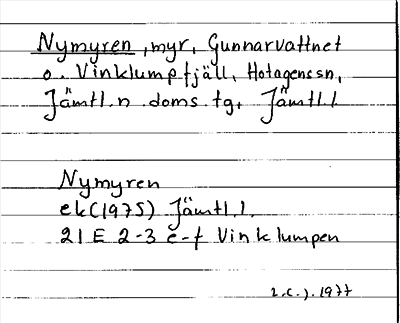 Nymyren, myr, Gunnarvattnet
o. Vinklumpfjäll, Hotagenssn,
Jämtl.n.doms.tg, Jämtl.l.
Nymyren
ek(1975) Jämtl.l.
21E 2-3 e-f Vinklumpen
1977